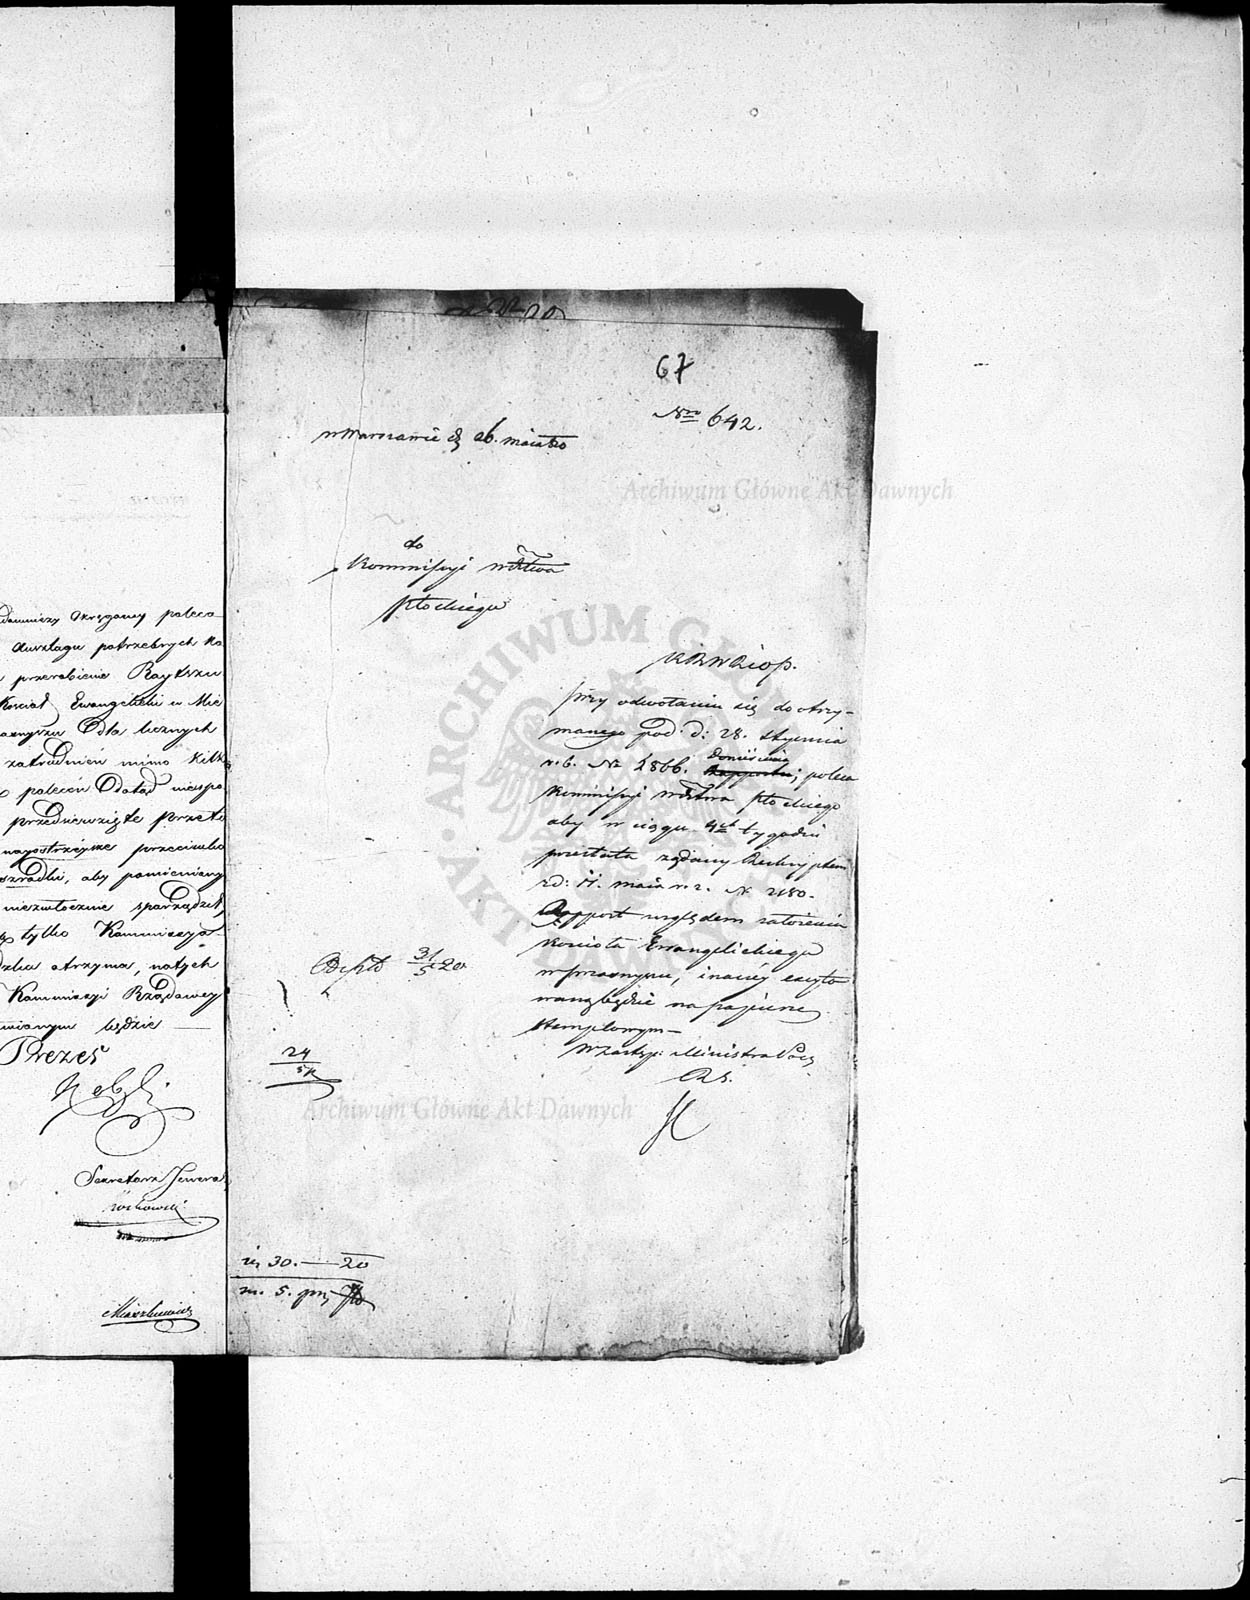 downiczy Okręgowy poleco
Anszlagu potrzebnych na
przerobienie Raytszu
Kościoł Ewangelicki w Mie
Odla licznych
zatrudnień mimo kilka
poleceń Odotąd niewspo
przedsięwzięte przeto
nayostrzeysze przeciwko
środki, aby pomieniony
niezwłocznie sporządził,
tylko Kommissya
otrzyma, natych
Kommissyi Rządowey
będzie
Prezes
Sekretarz Jeneral
67
Nro 642.
w Warszawie d. 26. maia 820
do
Kommissyi Wdztwa
Płockiego
K.R.W.R. i O.P.
Przy odwołaniu się do otrzy-
manego pod d: 28. stycznia
r.b. No 2866. Doniesienia Rapportu; poleca
Kommissyi Wdztwa Płockiego
aby w ciągu 4ch tygodni
przesłała żądany Reskryptem
z d: 11. maia r.z. N. 2180.
Rapport względem założenia
kościoła Ewangelickiego
w Przasnyszu, inaczey excyto
waną będzie na papierze
stemplowym—
W zastęp: Ministra Prez
R.S.
31/5 20
24/5
30. — 20
m. 5.
Archiwum Główne Akt Dawnych
ARCHIWUM GŁÓWNE AKT DAWNYCH
Archiwum Główne Akt Dawnych